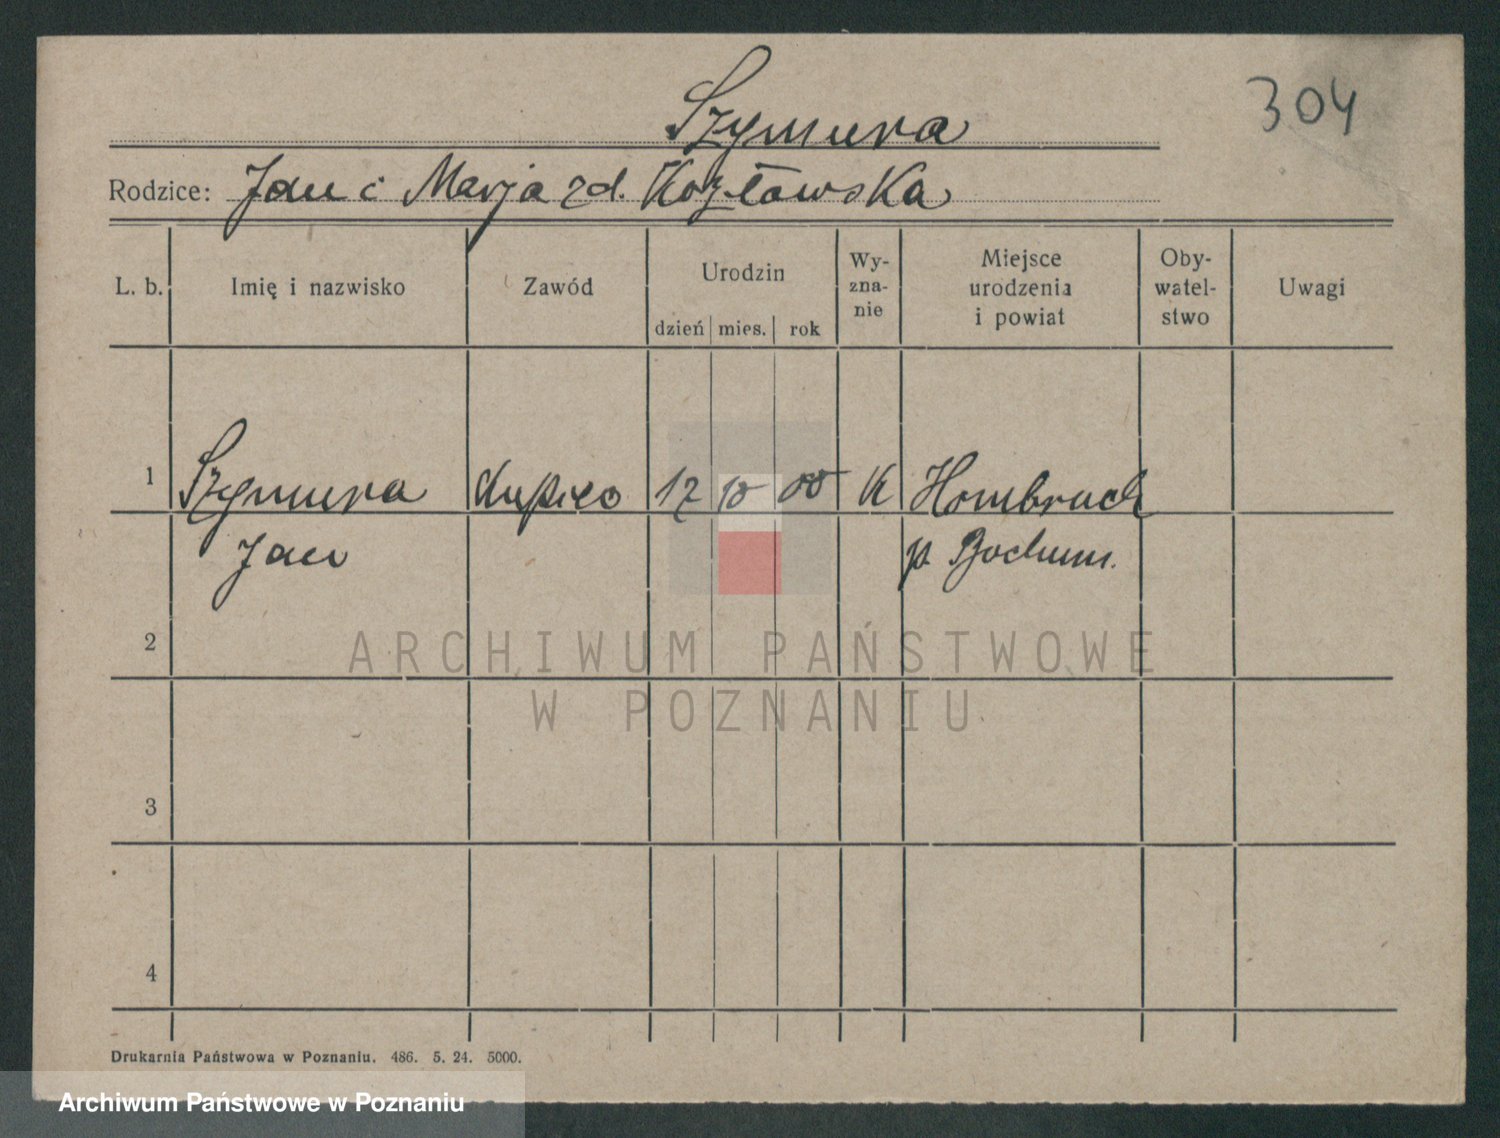 304
Szymura
Rodzice: Jan i Marja zd. Kozłowska
L. b. Imię i nazwisko Zawód Urodzin dzień mies. rok Wyznanie Miejsce urodzenia i powiat Obywatelstwo Uwagi
1 Szymura kupiec 12 10 00 K Hombruch
Jan p. Bochum.
2
ARCHIWUM PAŃSTWOWE
W POZNANIU
3
4
Drukarnia Państwowa w Poznaniu. 486. 5. 24. 5000.
Archiwum Państwowe w Poznaniu